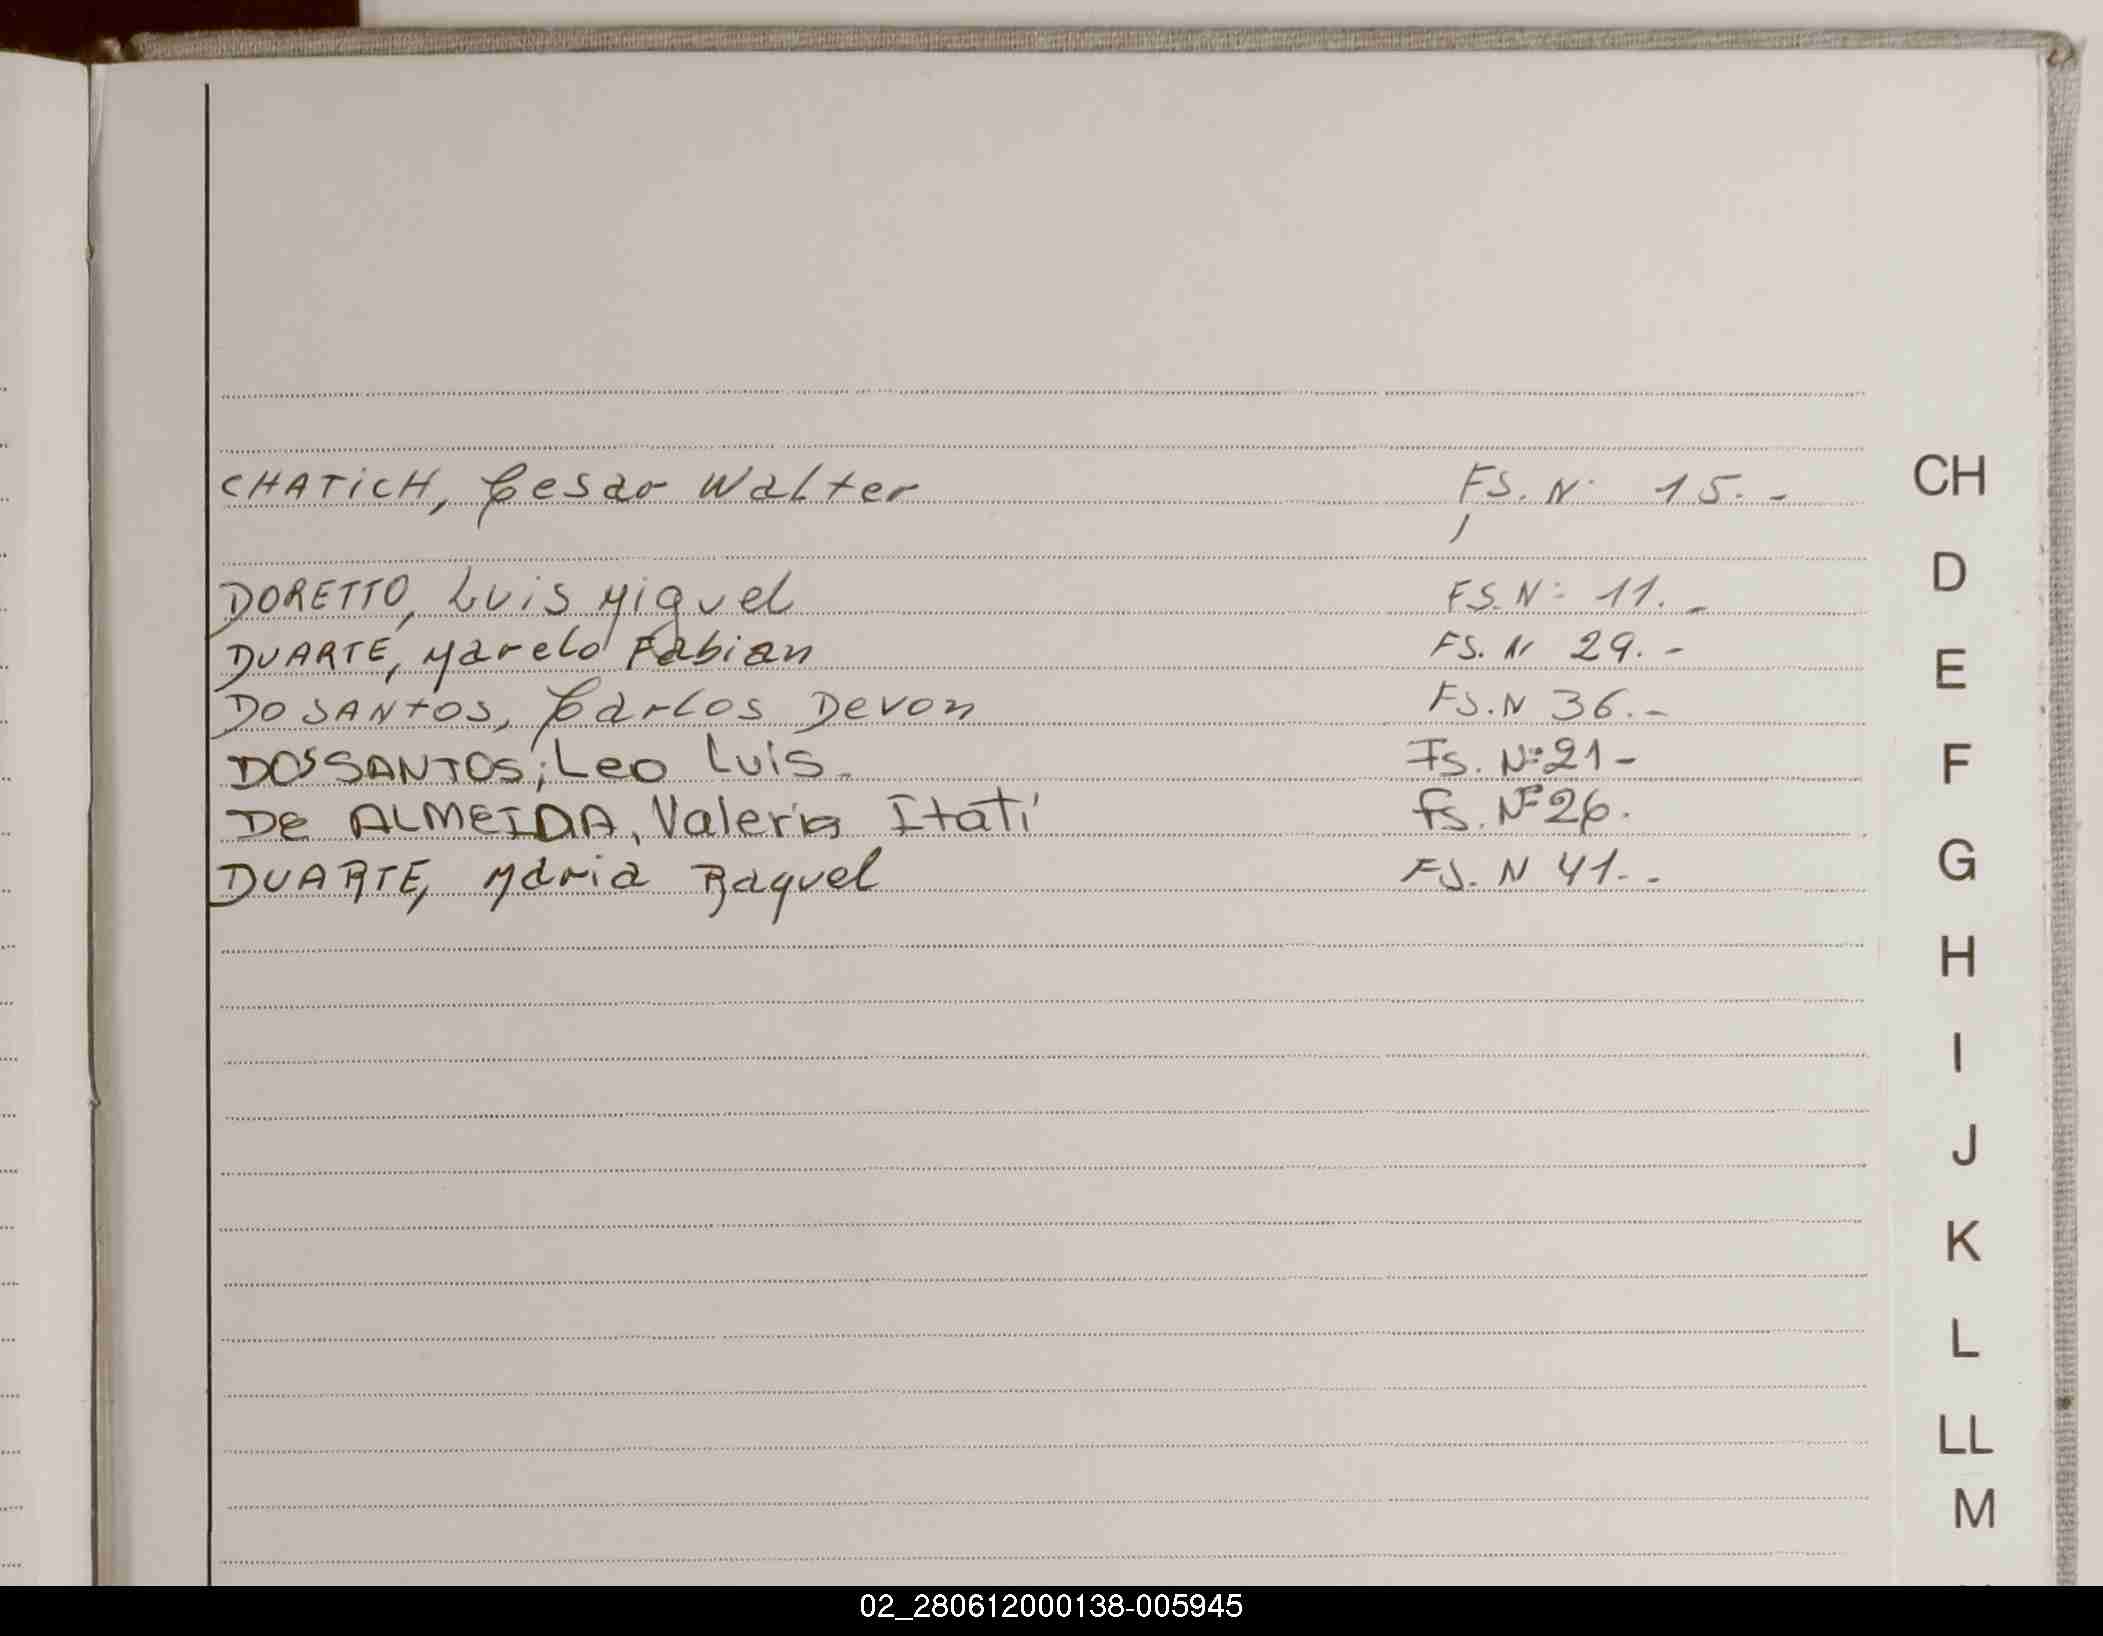 CHATICH, Cesar Walter FS. N° 15.-
DORETTO, Luis Miguel FS. N° 11.-
DUARTE, Marelo Fabian FS. N 29.-
DO SANTOS, Carlos Devon FS. N 36.-
DOS SANTOS, Leo Luis. Fs. Nº 21-
De ALMEIDA, Valeria Itatí fs. Nº 26.
DUARTE, Maria Raquel FS. N 41.-
CH
D
E
F
G
H
I
J
K
L
LL
M
02_280612000138-005945